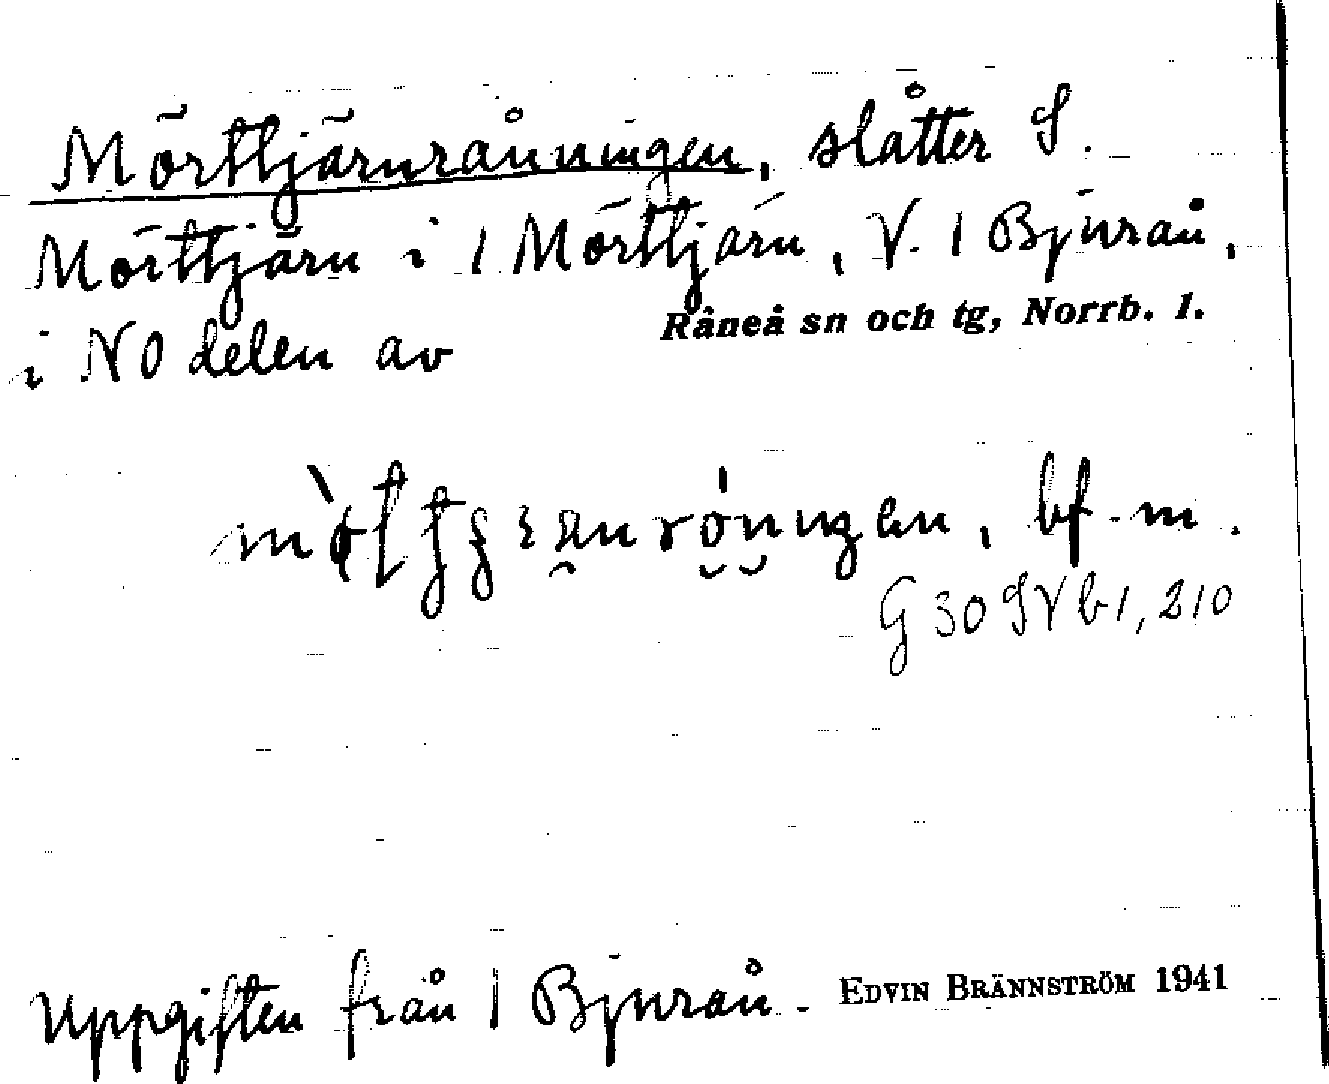 Mörttjärnråningen, slåtter S.
Mörttjärn i 1 Mörttjärn, V. 1 Bjurån,
i NO delen av Råneå sn och tg, Norrb. l.
bf. m.
G 30 SV b1, 210
Uppgiften från 1 Bjurån. EDVIN BRÄNNSTRÖM 1941